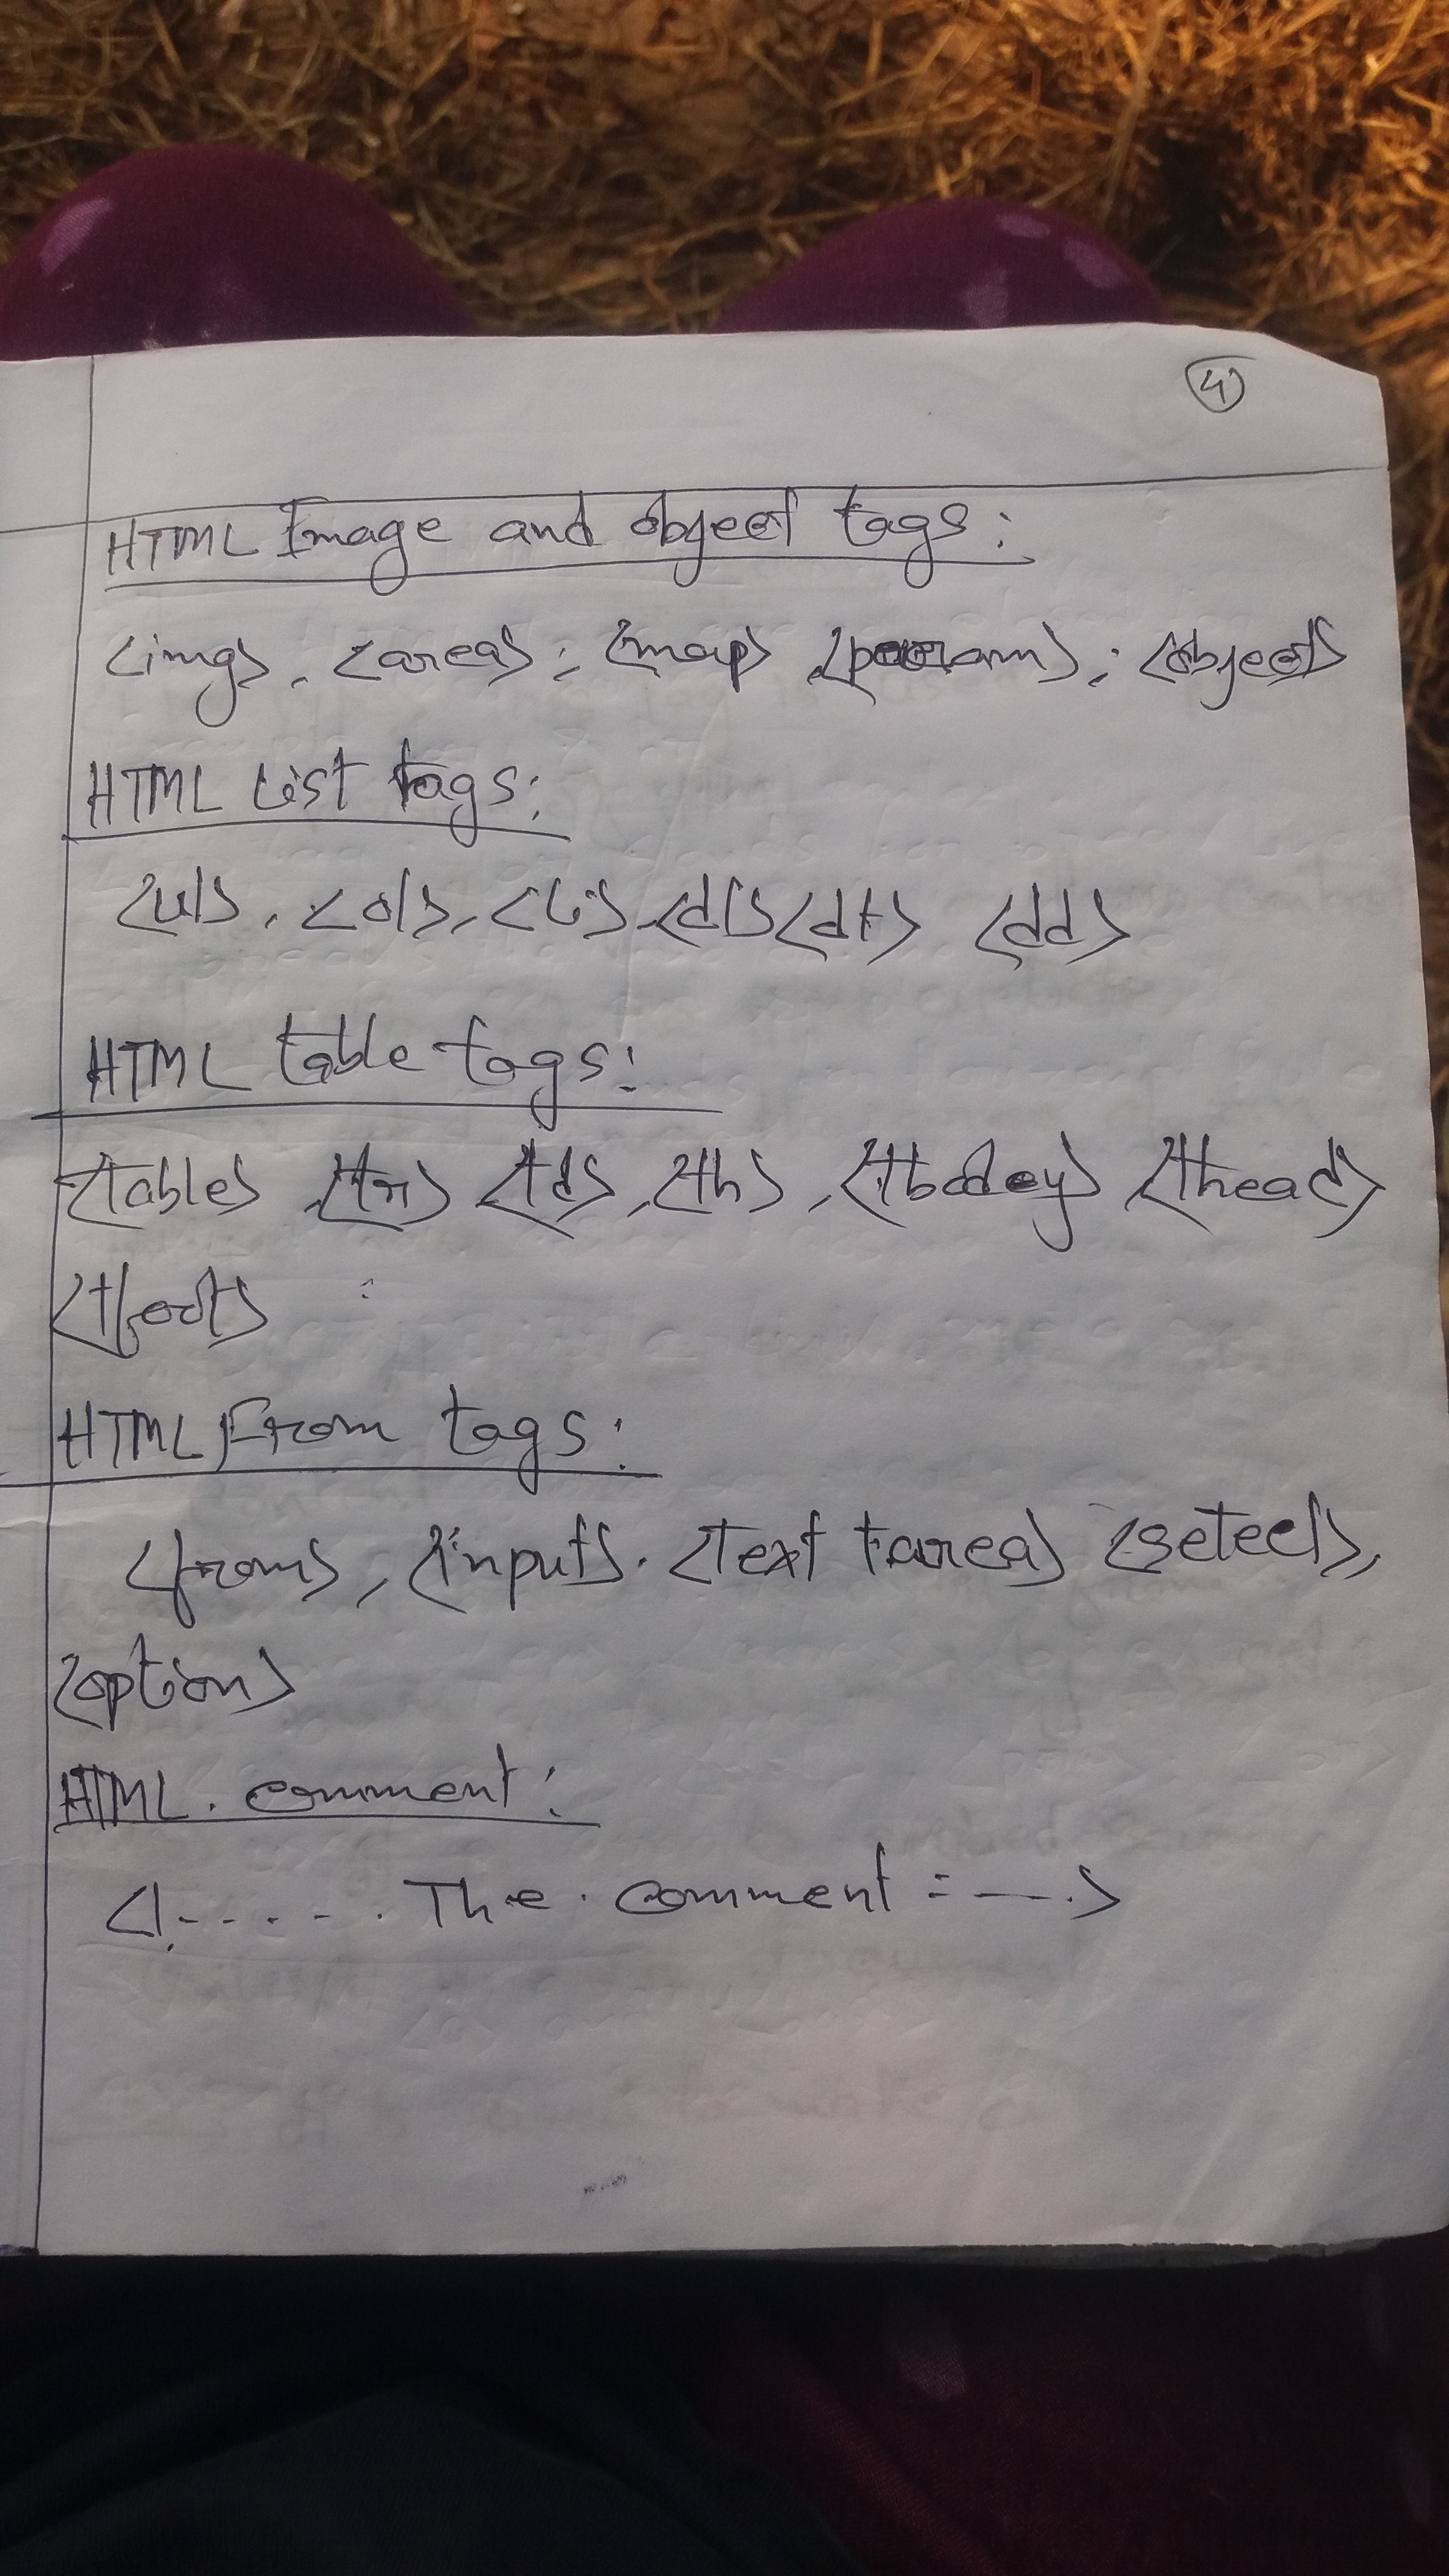 4
HTML Image and object tags:
<img>, <area>, <map>, <param>, <object>
HTML List tags:
<ul>, <ol>, <li>, <dl> <dt> <dd>
HTML table tags:
<table>, <tr> <td>, <th>, <tbodey> <thead>
<tfoot>
HTML From tags:
<from>, <input>. <Text tarea> <setect>,
<option>
HTML. comment:
<!----- The comment ---->